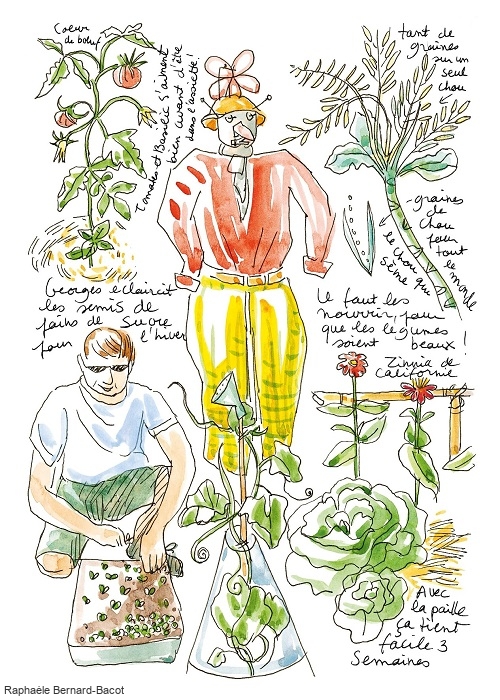 Coeur
de boeuf
Tomates et Basilic s'aiment
bien avant d'être
dans l'assiette!
tant de
graines
sur un
seul
chou
graines
de
chou
pour
tout
le monde
le chou qui
sème
Georges eclaircit
les semis de
pains de sucre
pour l'hiver
Il faut les
nourrir, pour
que les légumes
soient beaux!
Zinnia de
Californie
Avec
la paille
ça tient
facile 3
semaines
Raphaèle Bernard-Bacot